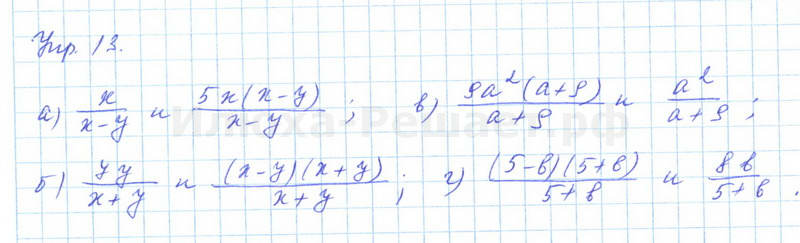 Упр. 13.
а) x/(x-y) и 5x(x-y)/(x-y) ; в) 9a²(a+9)/(a+9) и a²/(a+9) ;
б) yy/(x+y) и (x-y)(x+y)/(x+y) ; г) (5-в)(5+в)/(5+в) и 8в/(5+в) .
Илюха-Решает.рф